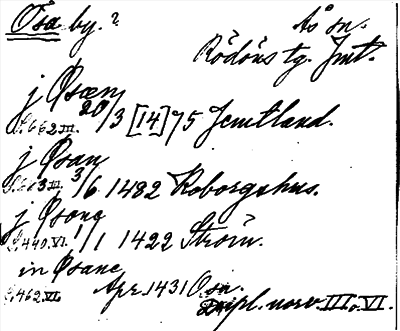 Ösa by.? Ås sn.
Rödöns tg. Jmt.
j Øsæm
S. 662 III. 20/3 [14]75 Jemtland.
j Øsan
S. 663 III. 3/6 1482 Roborgxhus.
j Øsong
S. 440. VI. 1/1 1422 Strøm.
in Øsane
S. 462 VI. Apr. 1431 O. sn.
Dipl. norv. III. o. VI.